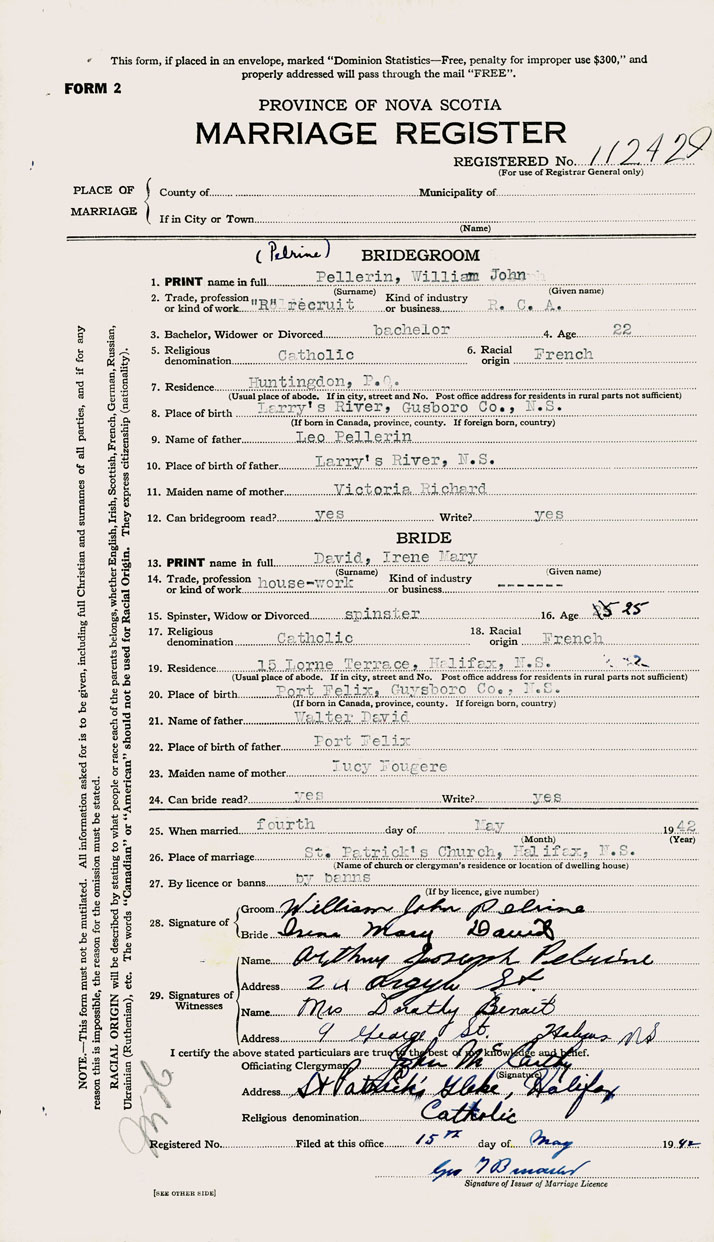 This form, if placed in an envelope, marked "Dominion Statistics—Free, penalty for improper use $300," and
properly addressed will pass through the mail "FREE".
FORM 2
PROVINCE OF NOVA SCOTIA
MARRIAGE REGISTER
REGISTERED No. 112429
(For use of Registrar General only)
PLACE OF MARRIAGE
County of Municipality of
If in City or Town
(Name)
(Pelrine) BRIDEGROOM
1. PRINT name in full Pellerin, William John
(Surname) (Given name)
2. Trade, profession or kind of work "R" recruit Kind of industry or business R. C. A.
3. Bachelor, Widower or Divorced bachelor 4. Age 22
5. Religious denomination Catholic 6. Racial origin French
7. Residence Huntingdon, P.Q.
(Usual place of abode. If in city, street and No. Post office address for residents in rural parts not sufficient)
8. Place of birth Larry's River, Gusboro Co., N.S.
(If born in Canada, province, county. If foreign born, country)
9. Name of father Leo Pellerin
10. Place of birth of father Larry's River, N.S.
11. Maiden name of mother Victoria Richard
12. Can bridegroom read? yes Write? yes
BRIDE
13. PRINT name in full David, Irene Mary
(Surname) (Given name)
14. Trade, profession or kind of work house-work Kind of industry or business -------
15. Spinster, Widow or Divorced spinster 16. Age 25
17. Religious denomination Catholic 18. Racial origin French
19. Residence 15 Lorne Terrace, Halifax, N.S.
(Usual place of abode. If in city, street and No. Post office address for residents in rural parts not sufficient)
20. Place of birth Port Felix, Guysboro Co., N.S.
(If born in Canada, province, county. If foreign born, country)
21. Name of father Walter David
22. Place of birth of father Port Felix
23. Maiden name of mother Lucy Fougere
24. Can bride read? yes Write? yes
25. When married fourth day of May 1942
(Month) (Year)
26. Place of marriage St. Patrick's Church, Halifax, N.S.
(Name of church or clergyman's residence or location of dwelling house)
27. By licence or banns by banns
(If by licence, give number)
28. Signature of
Groom William John Pelrine
Bride Irene Mary David
29. Signatures of Witnesses
Name Arthur Joseph Pelrine
Address Argyle St
Name Mrs Dorathy Benoit
Address 9 George St, NS
I certify the above stated particulars are true to the best of my knowledge and belief.
Officiating Clergyman John McCarthy
(Signature)
Address St Patrick's Glebe, Halifax
Religious denomination Catholic
Registered No. Filed at this office 15th day of May 1942
Geo
Signature of Issuer of Marriage Licence
[SEE OTHER SIDE]
NOTE.—This form must not be mutilated. All information asked for is to be given, including full Christian and surnames of all parties, and if for any
reason this is impossible, the reason for the omission must be stated.
RACIAL ORIGIN will be described by stating to what people or race each of the parents belongs, whether English, Irish, Scottish, French, German, Russian,
Ukrainian (Ruthenian), etc. The words "Canadian" or "American" should not be used for Racial Origin. They express citizenship (nationality).